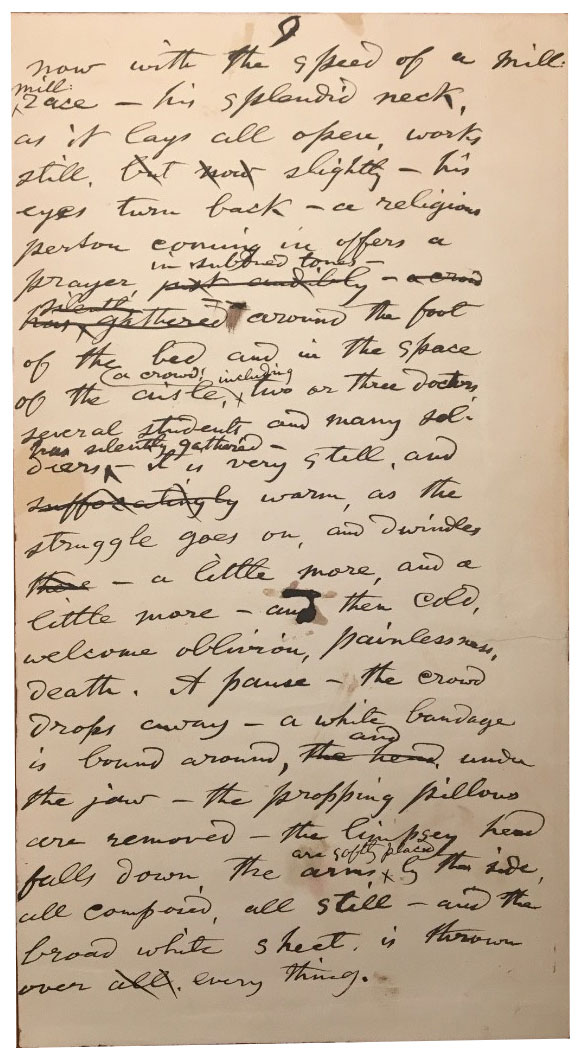 9
now with the speed of a mill-
mill-
race – his splendid neck,
as it lays all open, works
still, but now slightly – his
eyes turn back – a religious
person coming in offers a
in subdued tones –
prayer, just audibly – a crowd
silently
has gathered around the foot
of the bed and in the space
(a crowd, including
of the aisle, two or three doctors
several students and many sol-
has silently gathered –
diers – it is very still, and
suffocatingly warm, as the
struggle goes on, and dwindles
there – a little more, and a
little more – and then cold,
welcome oblivion, painlessness,
death. A pause – the crowd
drops away – a white bandage
and
is bound around, the head, under
the jaw – the propping pillows
are removed – the limpsey head
are softly placed
falls down, the arms by the side,
all composed, all still – and the
broad white sheet, is thrown
over all. every thing.